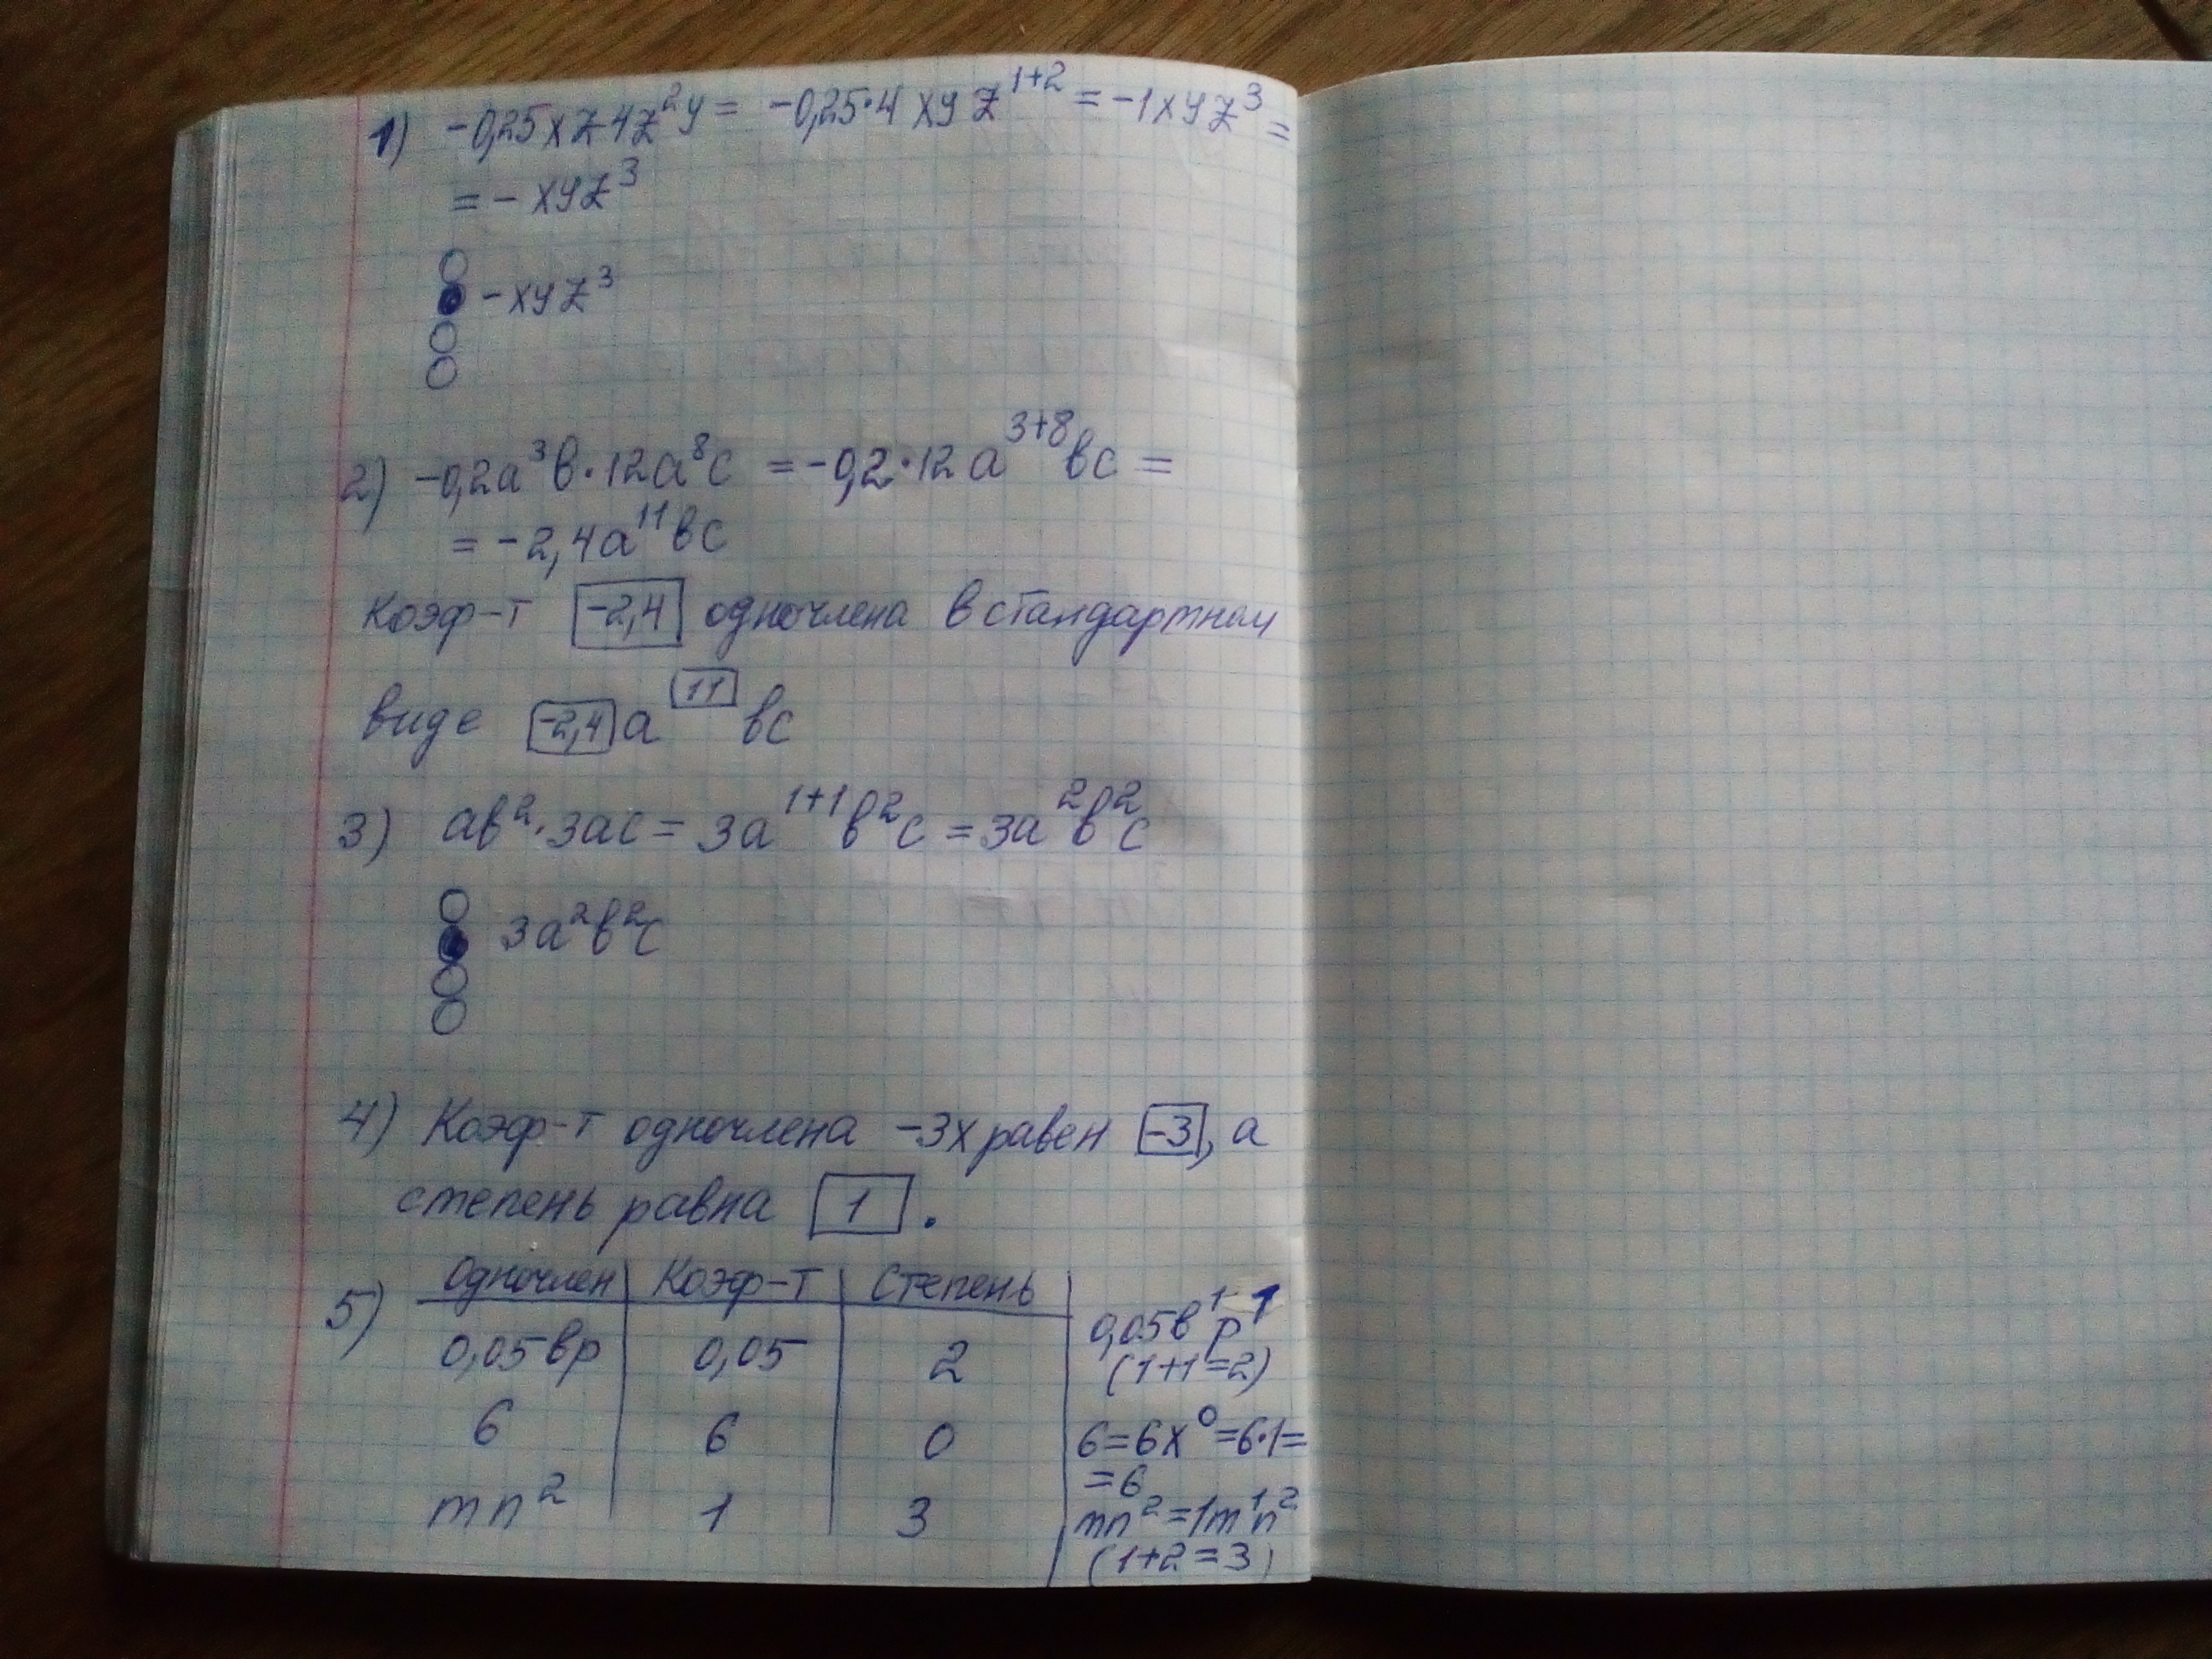 1) -0,25xz4z²y = -0,25·4xyz¹⁺² = -1xyz³ =
= -xyz³
-xyz³
2) -0,2a³в·12a⁸c = -0,2·12a³⁺⁸вc =
= -2,4a¹¹вc
Коэф-т -2,4 одночлена в стандартном
виде -2,4 a¹¹ вc
3) aв²·3ac = 3a¹⁺¹в²c = 3a²в²c
3a²в²c
4) Коэф-т одночлена -3x равен -3, а
степень равна 1.
5) Одночлен Коэф-т Степень
0,05вр 0,05 2 0,05в¹р¹
(1+1=2)
6 6 0 6=6x⁰=6·1=
=6
mn² 1 3 mn²=1m¹n²
(1+2=3)